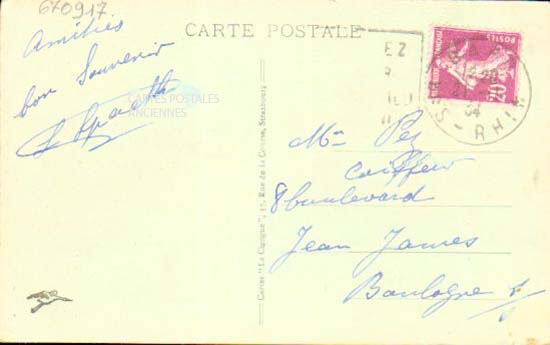 670917
CARTE POSTALE
Amitiés
bon Souvenir
CARTES POSTALES
ANCIENNES
Cartes "La Cigogne", 17, Rue de la Course, Strasbourg
EZ
POSTES
20
34
RHIN
Mr Pez
Coiffeur
8 boulevard
Jean Jaurès
Boulogne